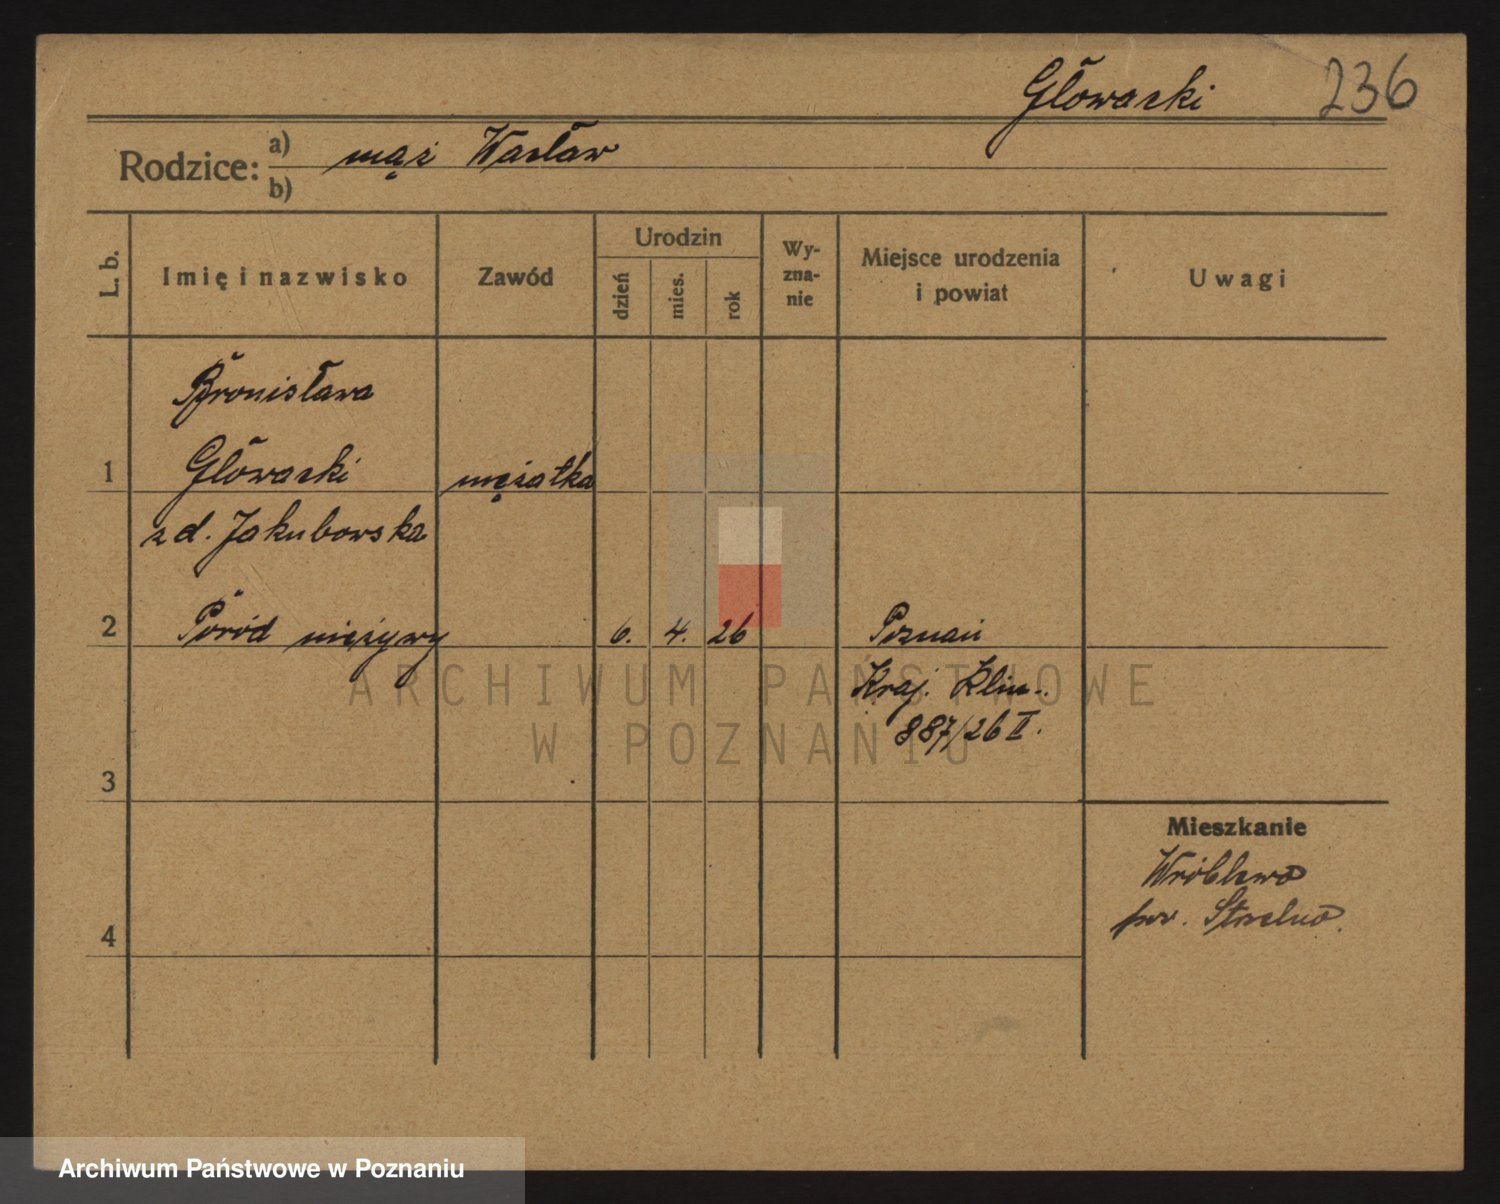 Głowacki 236
Rodzice: a) mąż Wacław
b)
L. b. Imię i nazwisko Zawód Urodzin dzień mies. rok Wy-zna-nie Miejsce urodzenia i powiat Uwagi
Bronisława
1 Głowacki mężatka
z d. Jakubowska
2 Poród nieżywy 6. 4. 26 Poznań
Kraj. Klin.
887/26 II.
3
Mieszkanie
Wróblewo
pow. Strzelno.
4
ARCHIWUM PAŃSTWOWE
W POZNANIU
Archiwum Państwowe w Poznaniu